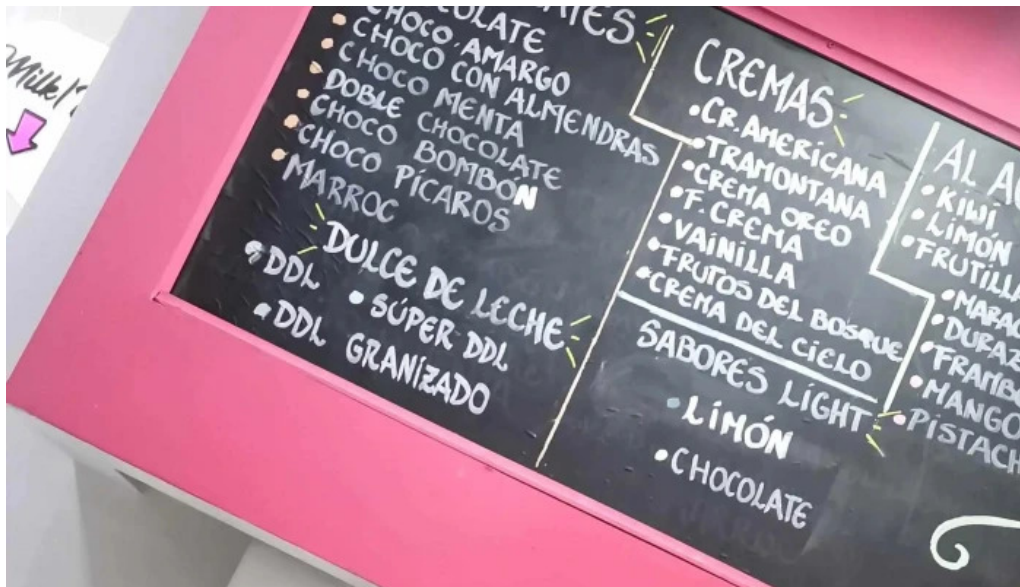 Milk
CHOCO AMARGO
CHOCO CON ALMENDRAS
CHOCO MENTA
DOBLE CHOCOLATE
CHOCO BOMBÓN
CHOCO PÍCAROS
MARROC
DULCE DE LECHE
DDL
SÚPER DDL
DDL GRANIZADO
CREMAS
CR. AMERICANA
TRAMONTANA
CREMA OREO
F. CREMA
VAINILLA
FRUTOS DEL BOSQUE
CREMA DEL CIELO
SABORES LIGHT
LIMÓN
CHOCOLATE
AL
KIWI
LIMÓN
FRUTILLA
MANGO